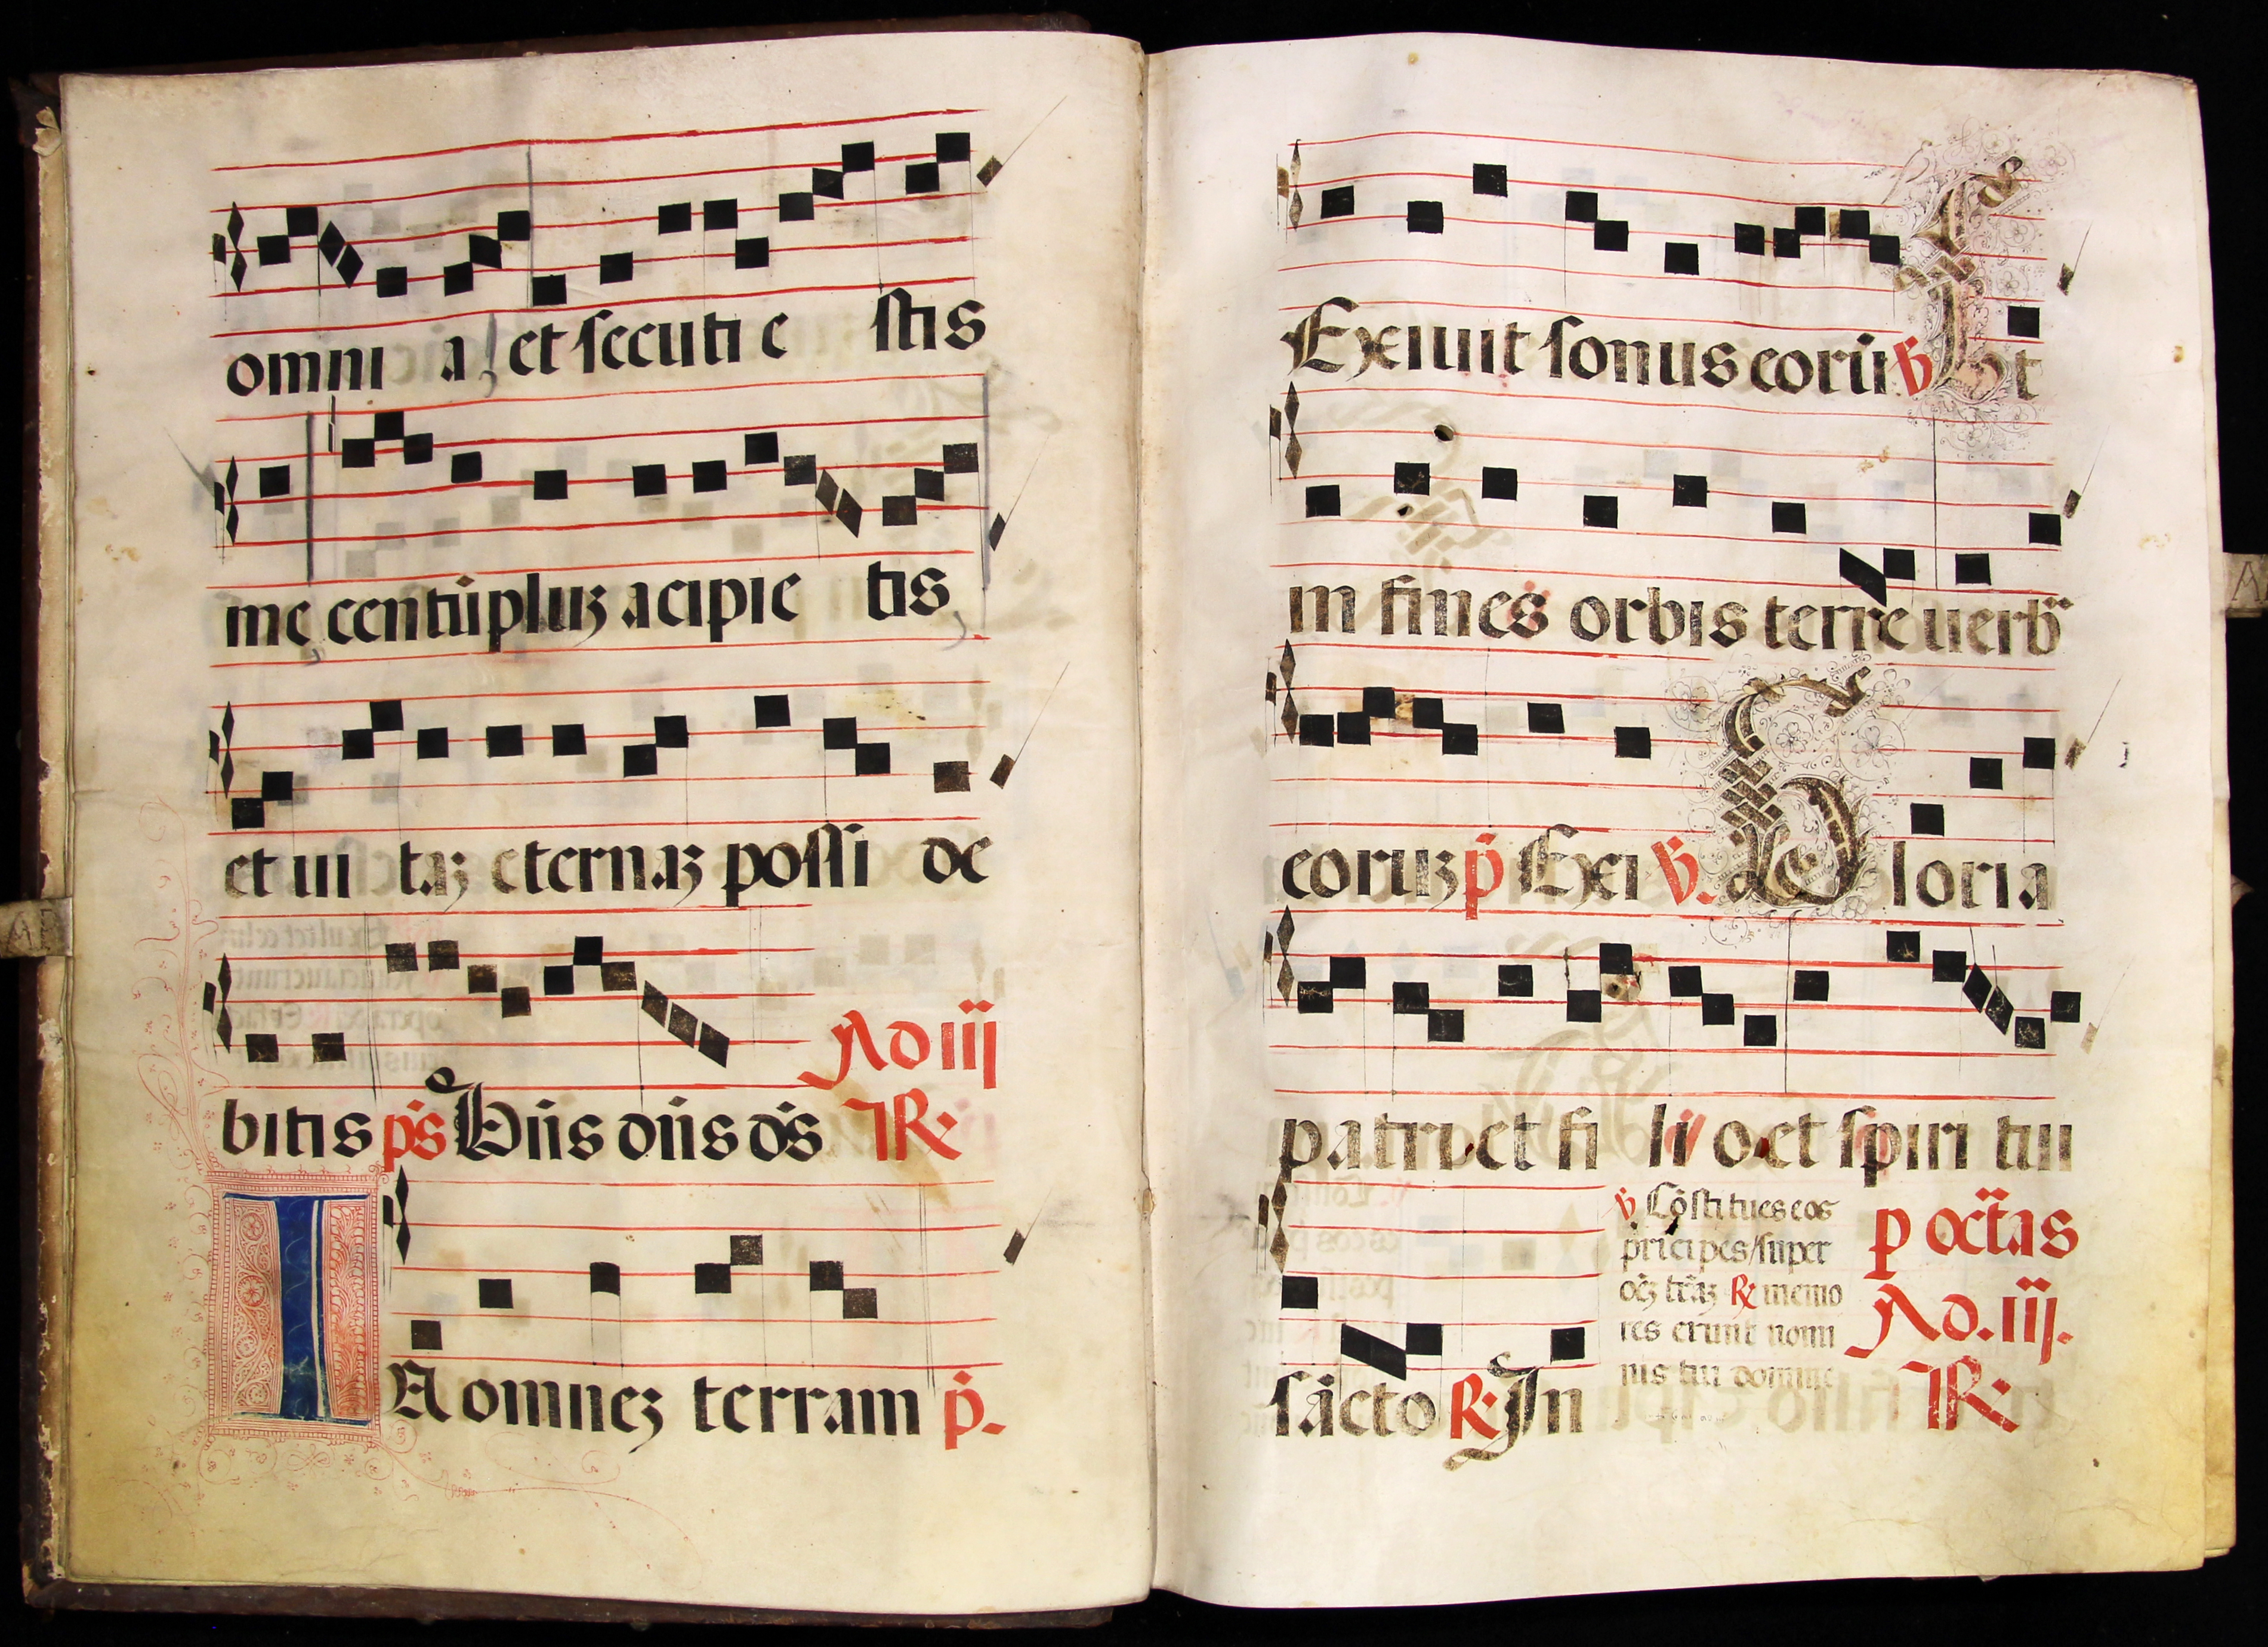 omni a et secuti e stis
me centūpluꝫ acipie tis
et ui taꝫ eternaꝫ possi de
bitis ps̄ Dn̄s dn̄s ds̄ Ad iij
R℣
IN omneꝫ terram p̄.
Exiuit sonus eorū ℣ Et
in fines orbis terre uerb̄
eoruꝫ p̄ Exei ℣. Gloria
patri et fi lio et spiri tui
sācto R℣ In
℣ Cōstitues eos
prīcipes/super
oēꝫ tr̄aꝫ R℣ memo
res erunt nomi
nis tui domine
p octās
Ad. iij.
R℣